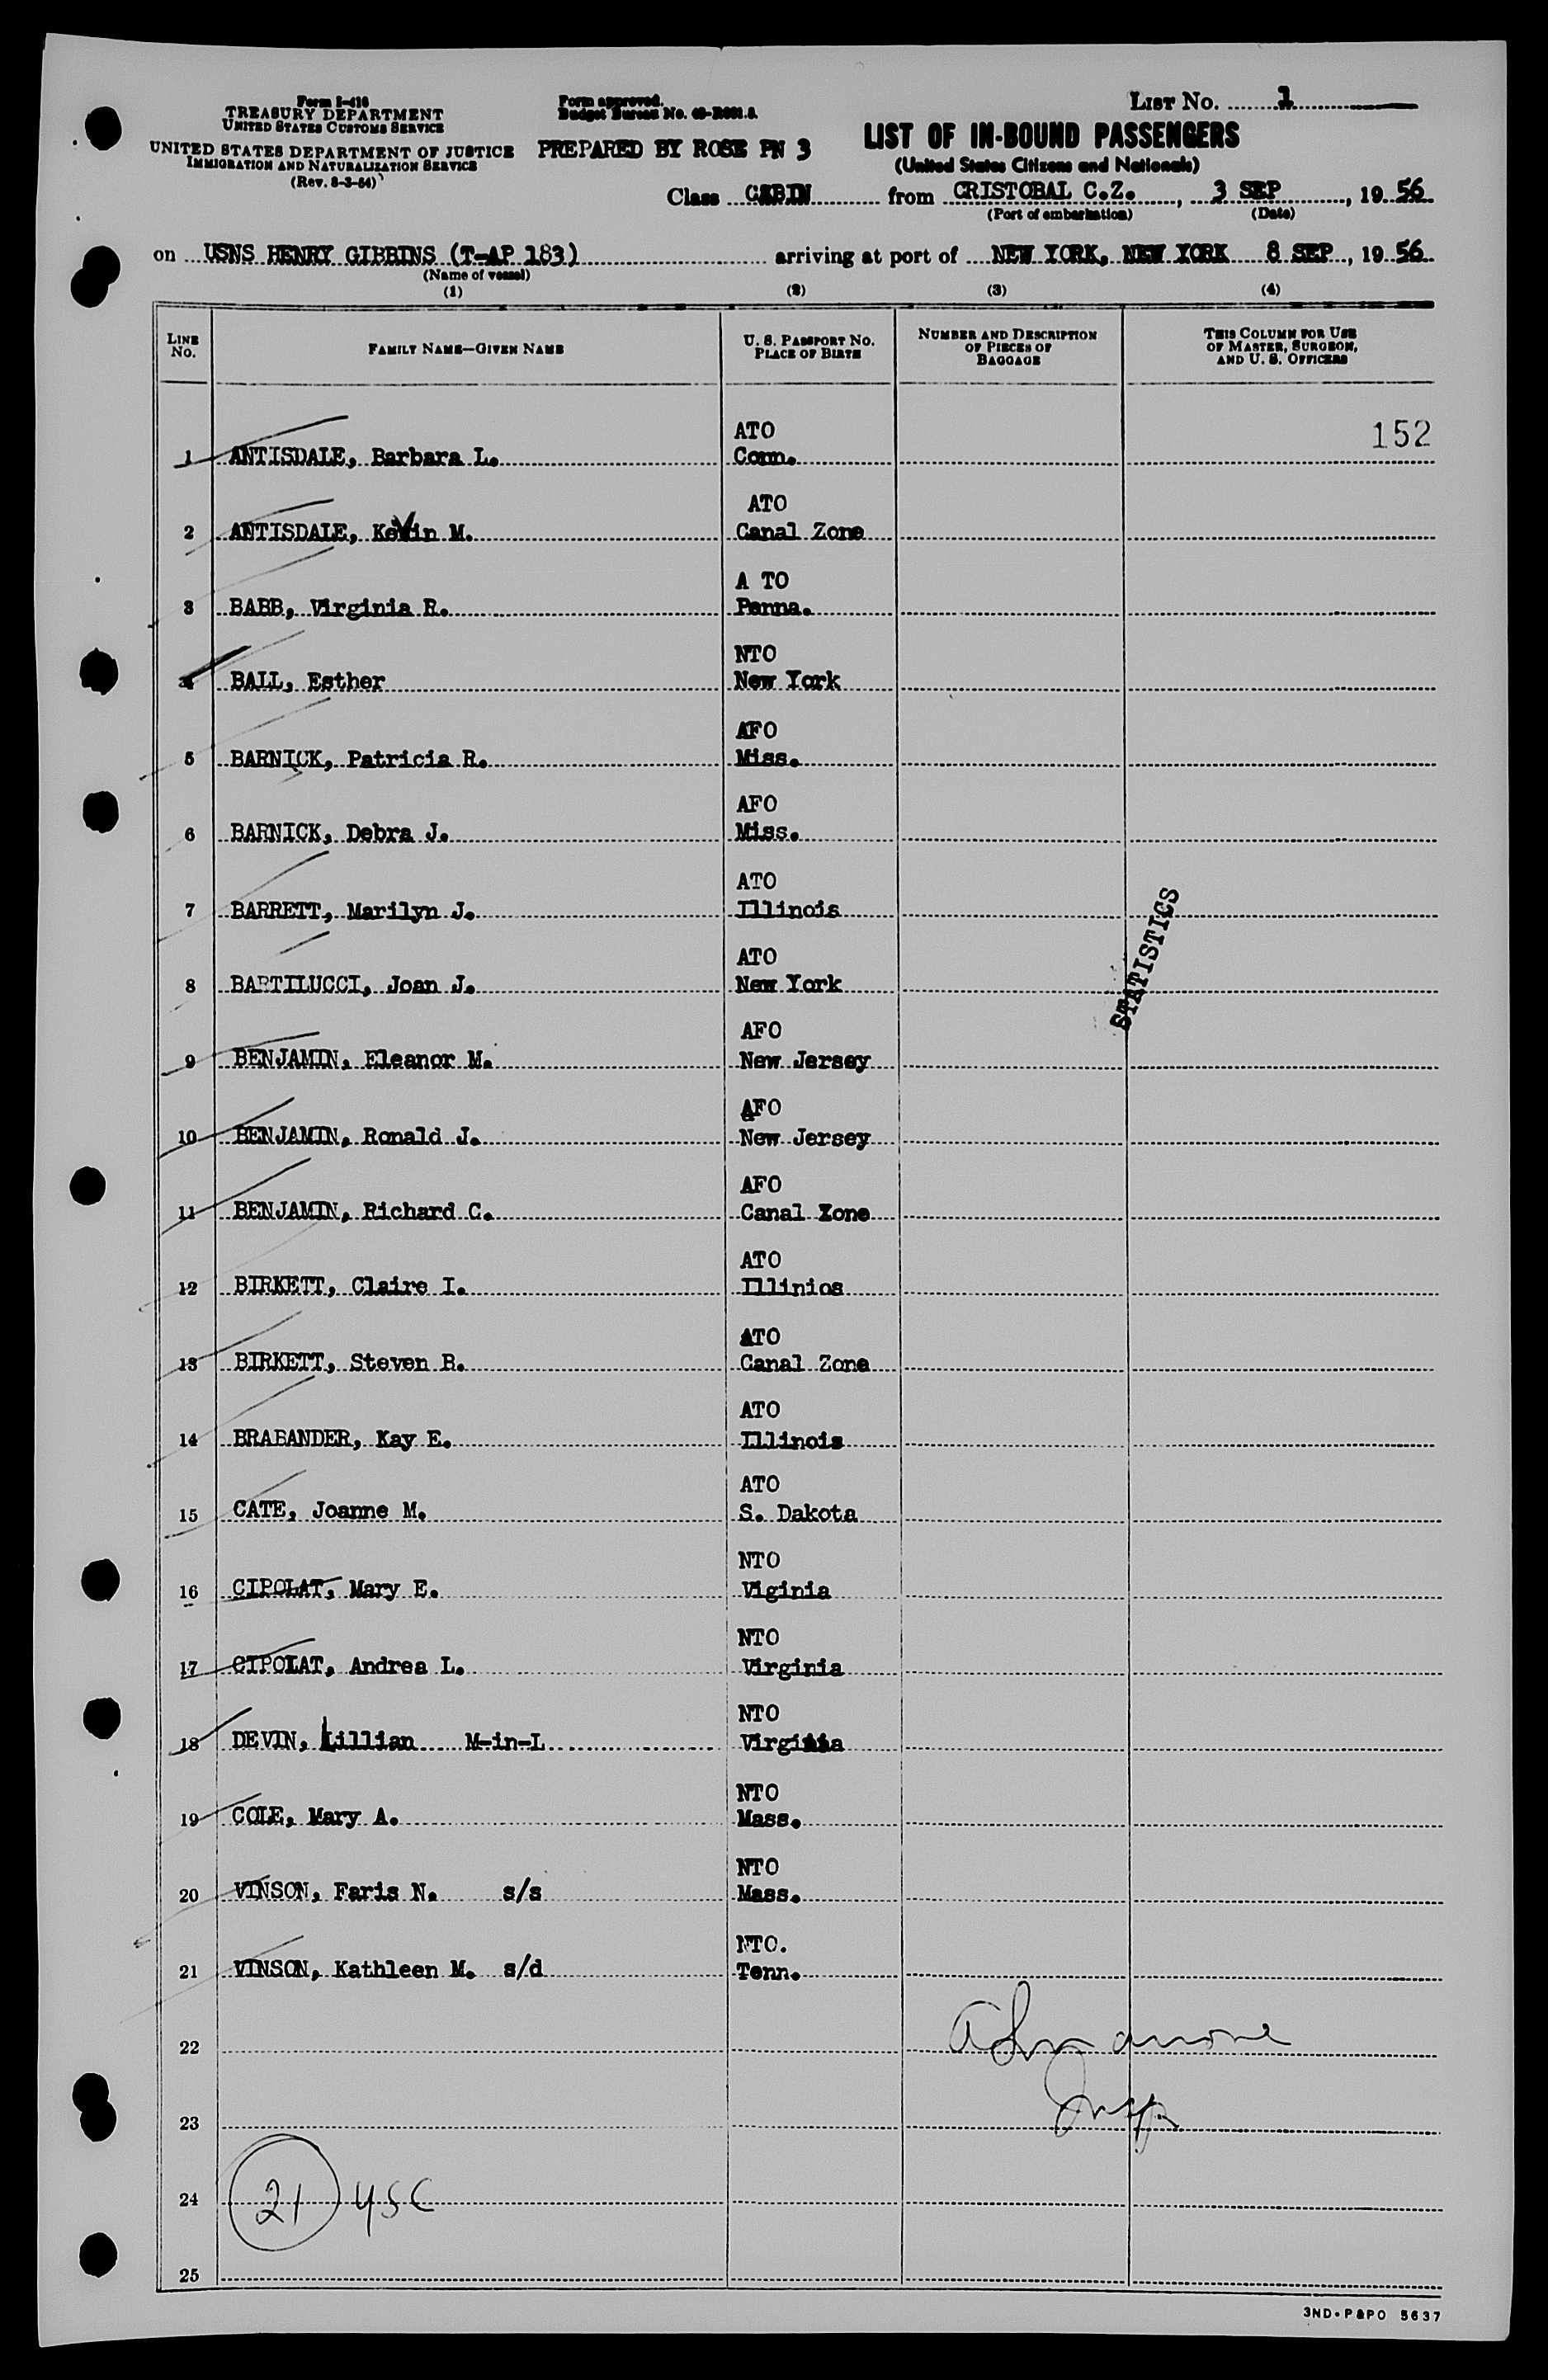 Form I-418
TREASURY DEPARTMENT
UNITED STATES CUSTOMS SERVICE
UNITED STATES DEPARTMENT OF JUSTICE
IMMIGRATION AND NATURALIZATION SERVICE
(Rev. 8-3-54)
Form approved.
Budget Bureau No.
PREPARED BY ROSE PN 3
LIST NO. 1
LIST OF IN-BOUND PASSENGERS
(United States Citizens and Nationals)
Class CABIN from CRISTOBAL C.Z., 3 SEP, 1956
(Port of embarkation) (Date)
on USNS HENRY GIBBINS (T-AP 183) arriving at port of NEW YORK, NEW YORK 8 SEP, 1956
(Name of vessel)
(1) (2) (3) (4)
LINE NO. FAMILY NAME—GIVEN NAME U. S. PASSPORT NO. PLACE OF BIRTH NUMBER AND DESCRIPTION OF PIECES OF BAGGAGE THIS COLUMN FOR USE OF MASTER, SURGEON, AND U. S. OFFICERS
ATO 152
1 ANTISDALE, Barbara L. Conn.
ATO
2 ANTISDALE, Kevin M. Canal Zone
A TO
3 BABB, Virginia R. Penna.
NTO
4 BALL, Esther New York
AFO
5 BARNICK, Patricia R. Miss.
AFO
6 BARNICK, Debra J. Miss.
ATO
7 BARRETT, Marilyn J. Illinois
STATISTICS
ATO
8 BARTILUCCI, Joan J. New York
AFO
9 BENJAMIN, Eleanor M. New Jersey
AFO
10 BENJAMIN, Ronald J. New Jersey
AFO
11 BENJAMIN, Richard C. Canal Zone
ATO
12 BIRKETT, Claire I. Illinios
ATO
13 BIRKETT, Steven R. Canal Zone
ATO
14 BRABANDER, Kay E. Illinois
ATO
15 CATE, Joanne M. S. Dakota
NTO
16 CIPOLAT, Mary E. Viginia
NTO
17 CIPOLAT, Andrea L. Virginia
NTO
18 DEVIN, Lillian M-in-L Virginia
NTO
19 COLE, Mary A. Mass.
NTO
20 VINSON, Faris N. s/s Mass.
NTO.
21 VINSON, Kathleen M. s/d Tenn.
22
23 Insp
24 21 USC
25
3ND-P&PO 5637